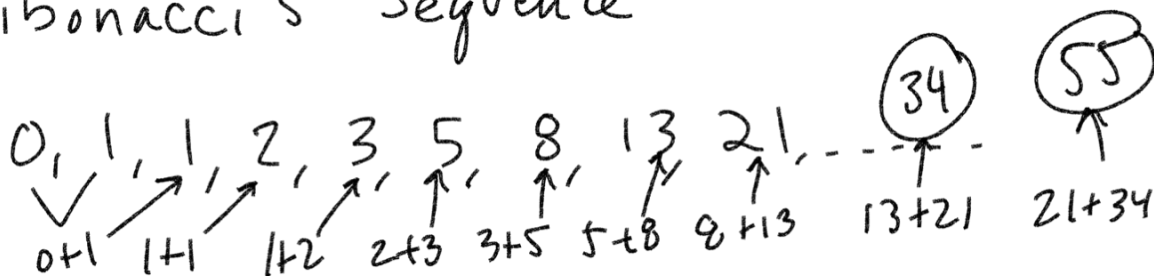 ibonacci's sequence
34 55
0, 1, 1, 2, 3, 5, 8, 13, 21, - - - - -
0+1 1+1 1+2 2+3 3+5 5+8 8+13 13+21 21+34